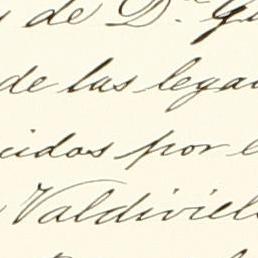 de Dn. Gu
de las lega
cidos por e
Valdiviel